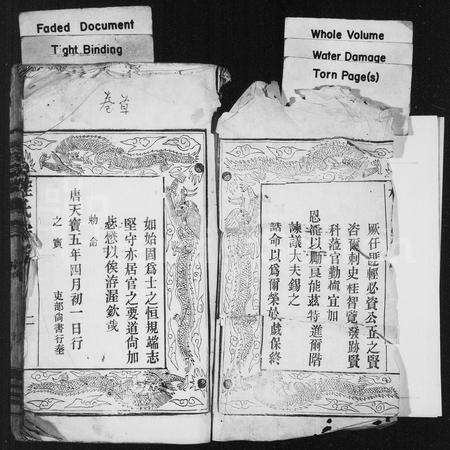 Faded Document
Tight Binding
Whole Volume
Water Damage
Torn Page(s)
卷草
厥任匪輕必資公正之賢
咨爾刺史桂智覽發跡賢
科蒞官勤慎宜加
恩能以勵真能茲特進爾階
諫議大夫錫之
誥命以爲爾榮於戲保終
如始固爲士之恒規端志
堅守亦居官之要道尚加
懋愆以俟渥欽哉
勅命
唐天寶五年四月初一日行
之寶
吏部尚書行奎
二